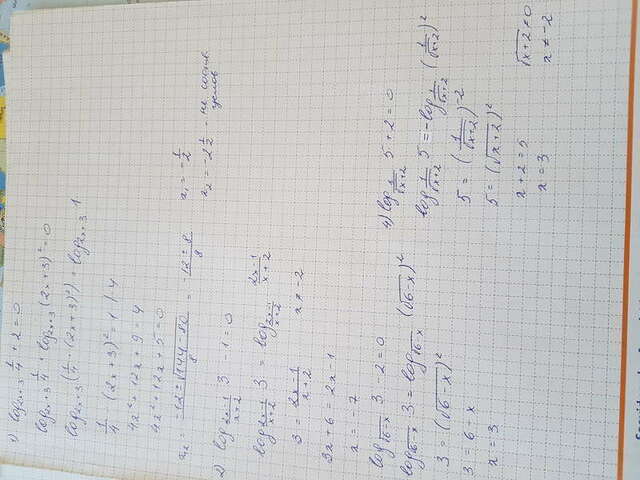 1) log₂ₓ₊₃ 1/4 + 2 = 0
log₂ₓ₊₃ 1/4 + log₂ₓ₊₃ (2x+3)² = 0
log₂ₓ₊₃ (1/4 · (2x+3)²) = log₂ₓ₊₃ 1
1/4 (2x+3)² = 1 | · 4
4x² + 12x + 9 = 4
4x² + 12x + 5 = 0
= (-12 ± √(144-80))/8 = (-12 ± 8)/8
x₁ = -1/2
x₂ = -2 1/2 - не
2) log_((2x-1)/(x+2)) 3 - 1 = 0
log_((2x-1)/(x+2)) 3 = log_((2x-1)/(x+2)) (2x-1)/(x+2)
3 = (2x-1)/(x+2)
x ≠ -2
3x + 6 = 2x - 1
x = -7
log_(√(6-x)) 3 - 2 = 0
log_(√(6-x)) 3 = log_(√(6-x)) (√(6-x))²
3 = (√(6-x))²
3 = 6 - x
x = 3
4) log_(1/√(x+2)) 5 + 2 = 0
log_(1/√(x+2)) 5 = -log_(1/√(x+2)) (1/√(x+2))²
5 = (1/√(x+2))⁻²
5 = (√(x+2))²
x + 2 = 5
x = 3
√(x+2) ≠ 0
x ≠ -2